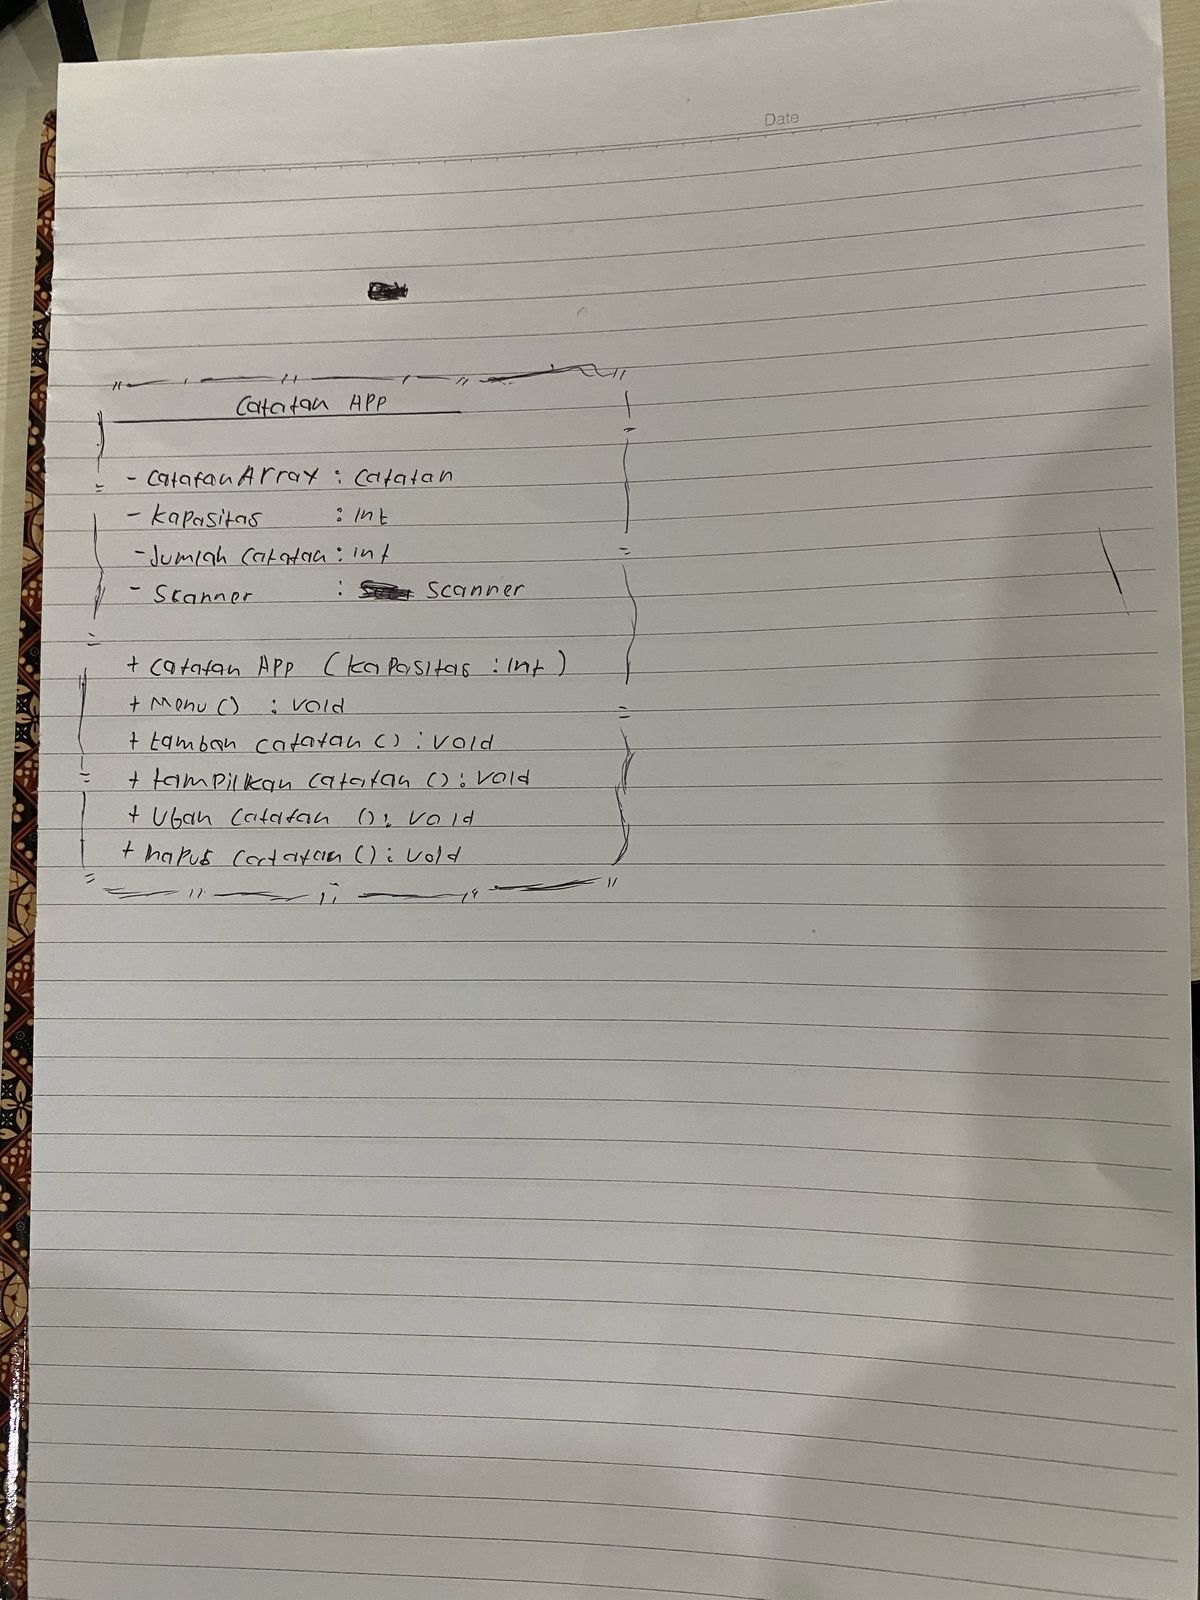 Date
Catatan APP
- CatatanArray : Catatan
- Kapasitas : Int
- Jumlah Catatan : int
- Scanner : Scanner
+ Catatan APP (Kapasitas : Int)
+ Menu () : Void
+ tambah Catatan () : Void
+ tampilkan Catatan () : Void
+ Ubah Catatan () : Void
+ hapus Catatan () : Void